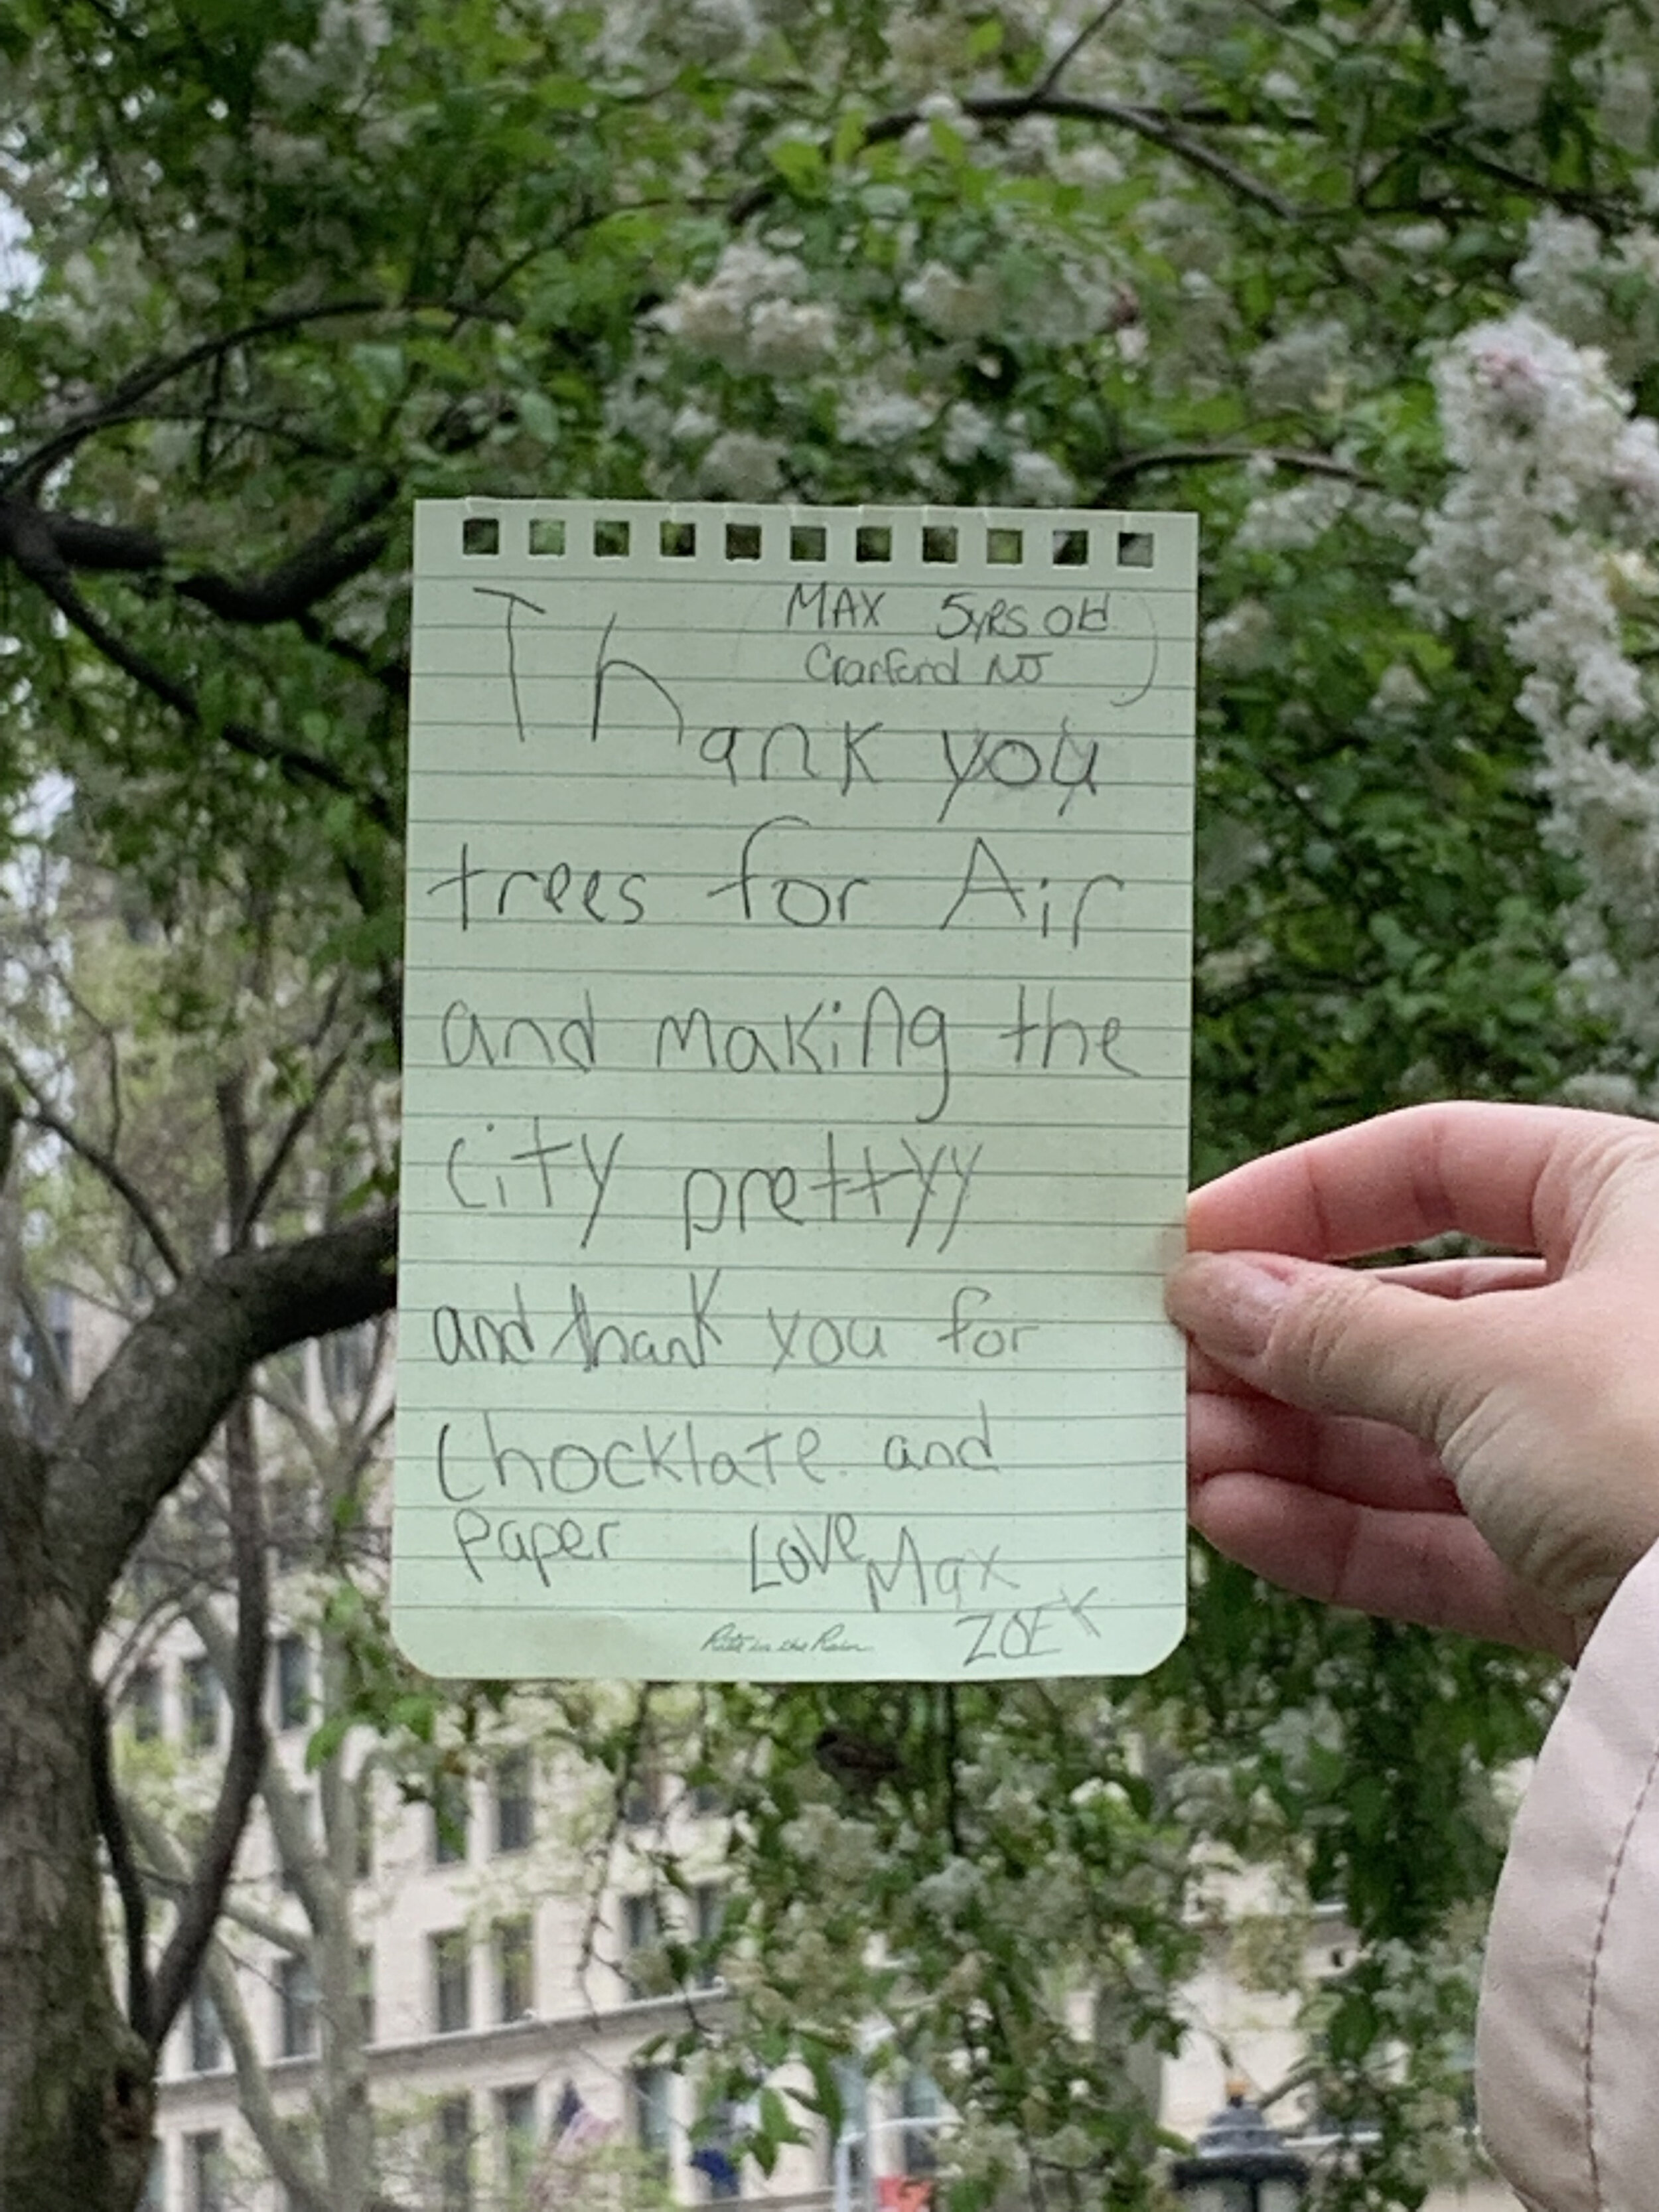 (MAX 5yRS Old
Cranford NJ)
Thank you
trees for Air
and making the
city prettyy
and thank you for
chocklate and
paper Love, Max
ZOEK
Rite in the Rain